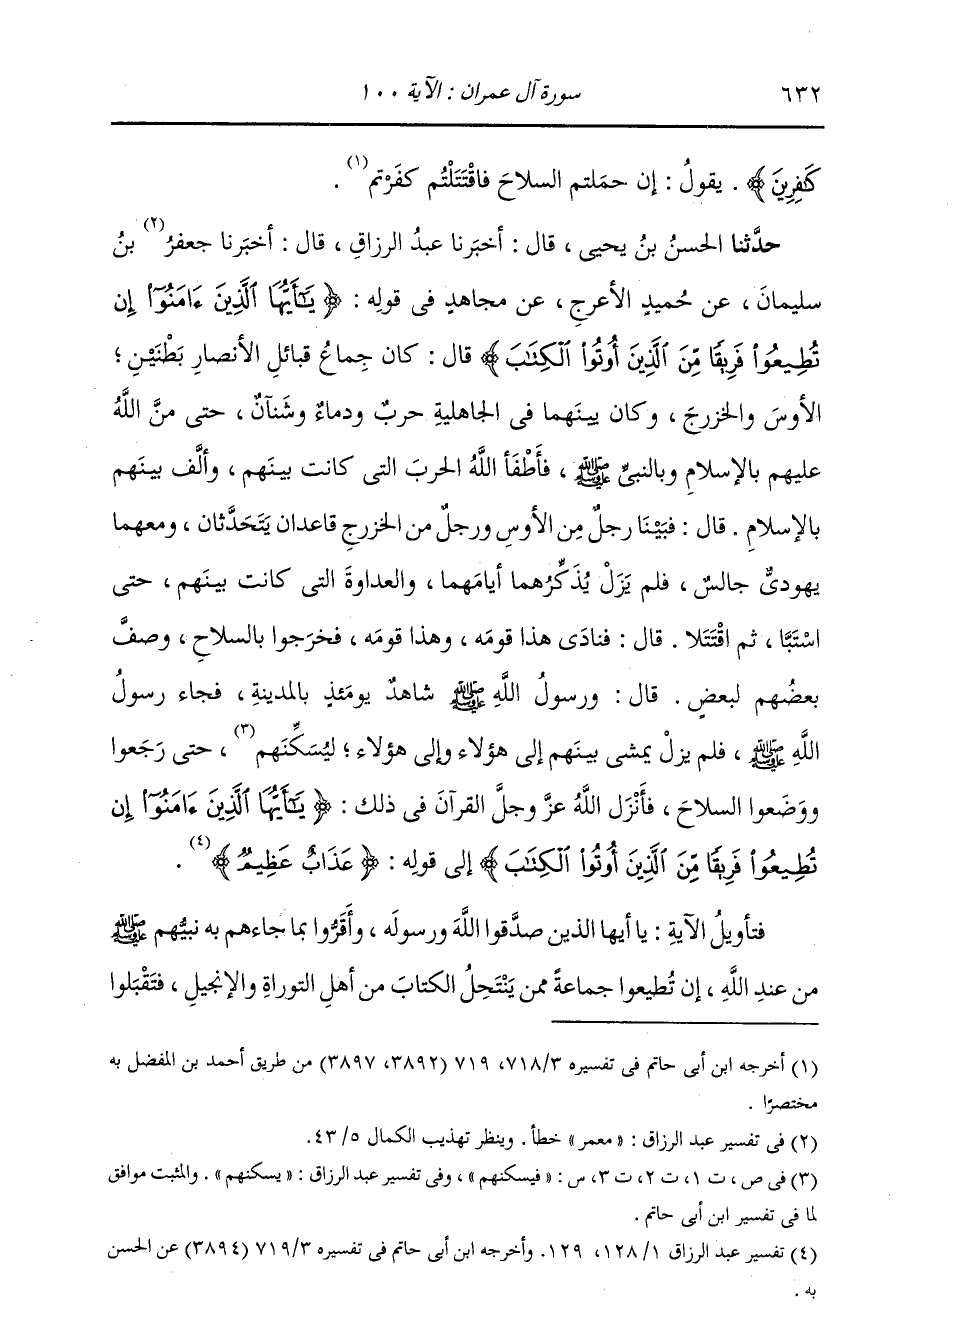 ٦٣٢
سورة آل عمران : الآية ١٠٠
كَٰفِرِينَ﴾ . يقولُ : إن حمَلتم السلاحَ فاقْتَتَلْتُم كفَرْتم(١) .
حدَّثنا الحسنُ بنُ يحيى ، قال : أخبَرنا عبدُ الرزاقِ ، قال : أخبَرنا جعفرُ(٢) بنُ
سليمانَ ، عن حُميدٍ الأعرجِ ، عن مجاهدٍ فى قولِه : ﴿ يَٰٓأَيُّهَا ٱلَّذِينَ ءَامَنُوٓا۟ إِن
تُطِيعُوا۟ فَرِيقًا مِّنَ ٱلَّذِينَ أُوتُوا۟ ٱلْكِتَٰبَ﴾ قال : كان جِماعُ قبائلِ الأنصارِ بَطْنَيْنِ ؛
الأوسَ والخزرجَ ، وكان بينَهما فى الجاهليةِ حربٌ ودماءٌ وشَنآنٌ ، حتى منَّ اللَّهُ
عليهم بالإسلامِ وبالنبىِّ ﷺ ، فأَطْفَأ اللَّهُ الحربَ التى كانت بينَهم ، وألَّف بينَهم
بالإسلامِ . قال : فبَيْنَا رجلٌ مِن الأوسِ ورجلٌ من الخزرجِ قاعدان يَتَحَدَّثان ، ومعهما
يهودىٌّ جالسٌ ، فلم يَزَلْ يُذَكِّرُهما أيامَهما ، والعداوةَ التى كانت بينَهم ، حتى
اسْتَبَّا ، ثم اقْتَتَلا . قال : فنادَى هذا قومَه ، وهذا قومَه ، فخرَجوا بالسلاحِ ، وصفَّ
بعضُهم لبعضٍ . قال : ورسولُ اللَّهِ ﷺ شاهدٌ يومَئذٍ بالمدينةِ ، فجاء رسولُ
اللَّهِ ﷺ ، فلم يزلْ يمشى بينَهم إلى هؤلاء وإلى هؤلاء ؛ ليُسَكِّنَهم(٣) ، حتى رَجَعوا
ووَضَعوا السلاحَ ، فأَنْزَل اللَّهُ عزَّ وجلَّ القرآنَ فى ذلك : ﴿ يَٰٓأَيُّهَا ٱلَّذِينَ ءَامَنُوٓا۟ إِن
تُطِيعُوا۟ فَرِيقًا مِّنَ ٱلَّذِينَ أُوتُوا۟ ٱلْكِتَٰبَ﴾ إلى قولِه : ﴿ عَذَابٌ عَظِيمٌ ﴾(٤) .
فتأويلُ الآيةِ : يا أيها الذين صدَّقوا اللَّهَ ورسولَه ، وأَقَرُّوا بما جاءهم به نبيُّهم ﷺ
من عندِ اللَّهِ ، إن تُطيعوا جماعةً ممن يَنْتَحِلُ الكتابَ من أهلِ التوراةِ والإنجيلِ ، فتَقْبَلوا
(١) أخرجه ابن أبى حاتم فى تفسيره ٧١٨/٣، ٧١٩ (٣٨٩٢، ٣٨٩٧) من طريق أحمد بن المفضل به
مختصرًا .
(٢) فى تفسير عبد الرزاق : « معمر » خطأ . وينظر تهذيب الكمال ٥/ ٤٣.
(٣) فى ص ، ت ١، ت ٢، ت ٣، س : « فيسكنهم » ، وفى تفسير عبد الرزاق : « يسكنهم » . والمثبت موافق
لما فى تفسير ابن أبى حاتم .
(٤) تفسير عبد الرزاق ١/ ١٢٨، ١٢٩. وأخرجه ابن أبى حاتم فى تفسيره ٧١٩/٣ (٣٨٩٤) عن الحسن
به .